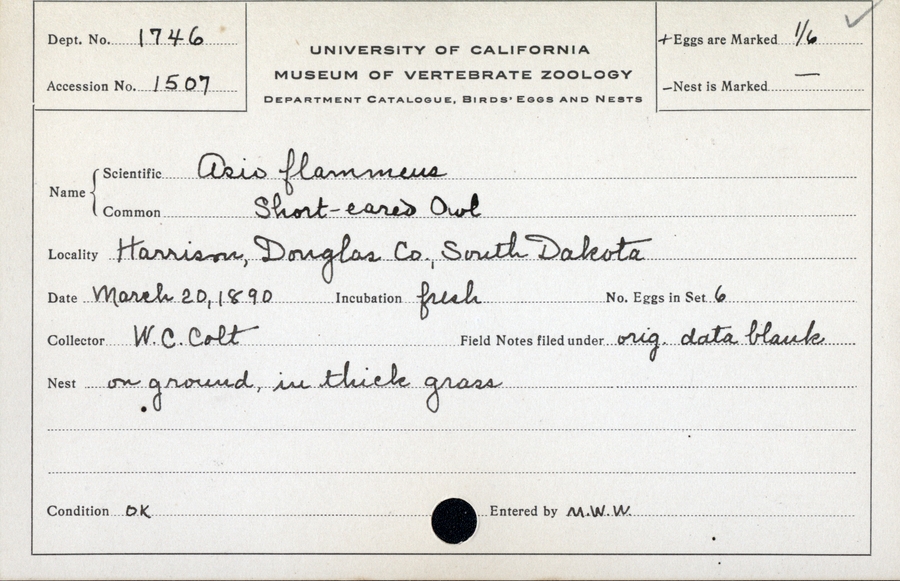 Dept. No. 1746
Accession No. 1507
UNIVERSITY OF CALIFORNIA
MUSEUM OF VERTEBRATE ZOOLOGY
DEPARTMENT CATALOGUE, BIRDS' EGGS AND NESTS
+Eggs are Marked 1/6
–Nest is Marked —
Name
Scientific Asio flammeus
Common Short-eared Owl
Locality Harrison, Douglas Co., South Dakota
Date March 20, 1890 Incubation fresh No. Eggs in Set 6
Collector W. C. Colt Field Notes filed under orig. data blank
Nest on ground, in thick grass
Condition OK Entered by M.W.W.